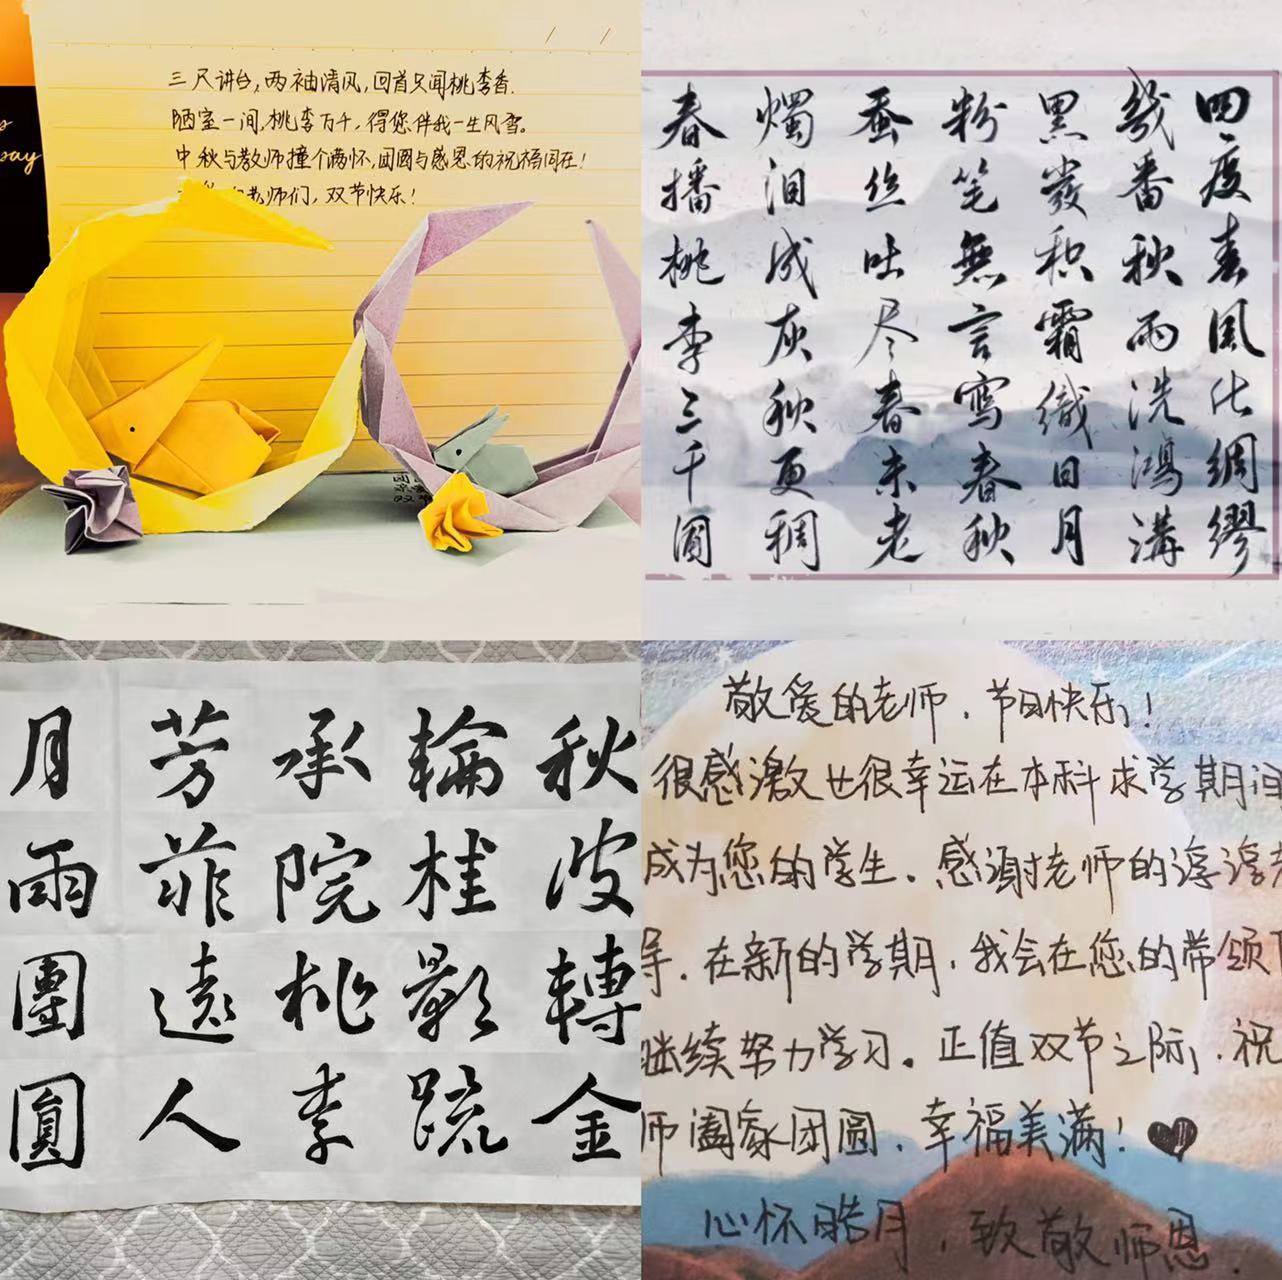 ay
三尺讲台,两袖清风,回首只闻桃李香.
陋室一间,桃李万千,得您伴我一生风雪。
中秋与教师撞个满怀,团圆与感恩的祝福同在!
老师们,双节快乐!
四度春风化绸缪
几番秋雨洗鸿溝
黑发积霜織日月
粉笔無言寫春秋
蚕丝吐尽春未老
燭泪成灰秋更稠
春播桃李三千圃
秋波轉金
輪桂影疏
承院桃李
芳菲遠人
月雨團圓
敬爱的老师,节日快乐!
很感激也很幸运在本科求学期间
成为您的学生。感谢老师的谆谆
导.在新的学期,我会在您的带领下
继续努力学习。正值双节之际,祝
师阖家团圆,幸福美满!
心怀皓月,致敬师恩.